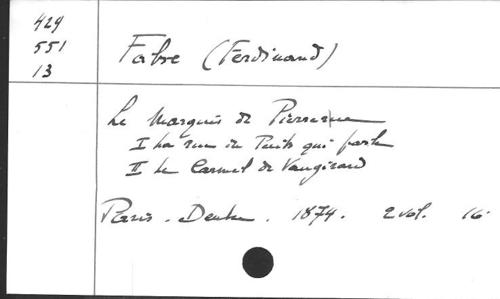 429
551
13
Fabre (Ferdinand)
Le Marquis de Pierrerue
I La rue du Puits qui parle
II Le Carmel de Vaugirard
Paris. Dentu. 1874. 2 vol. 16